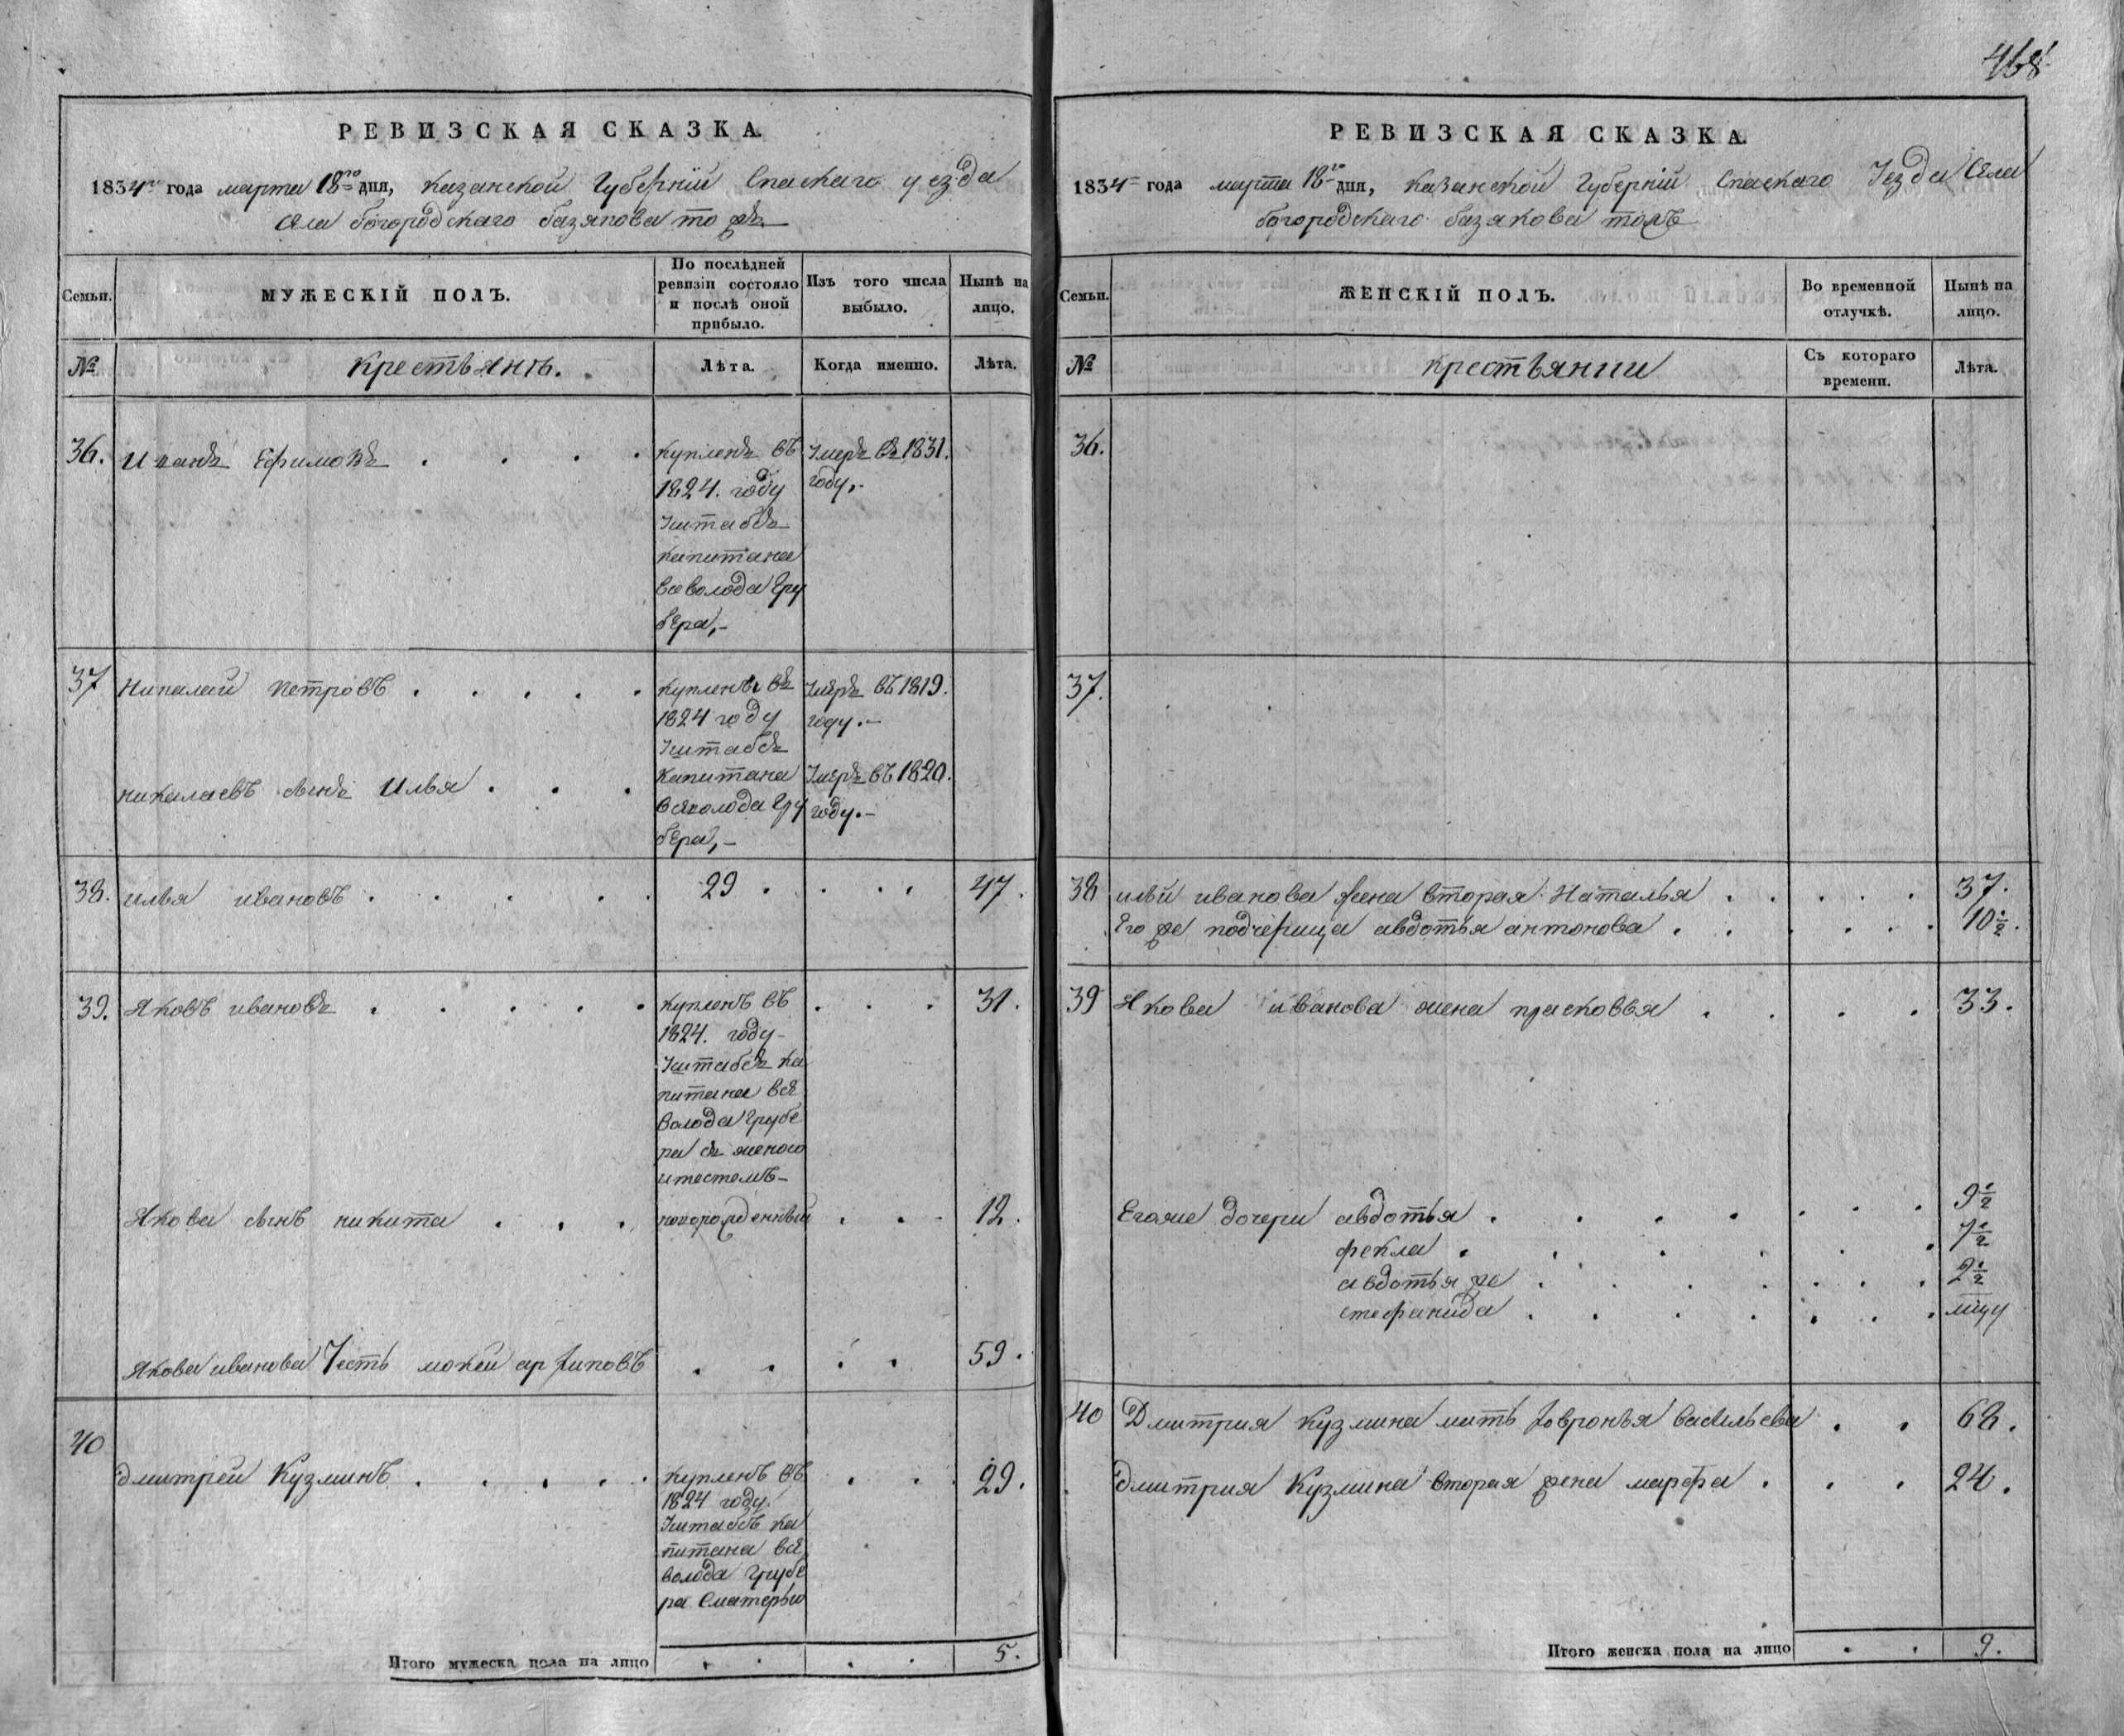 468
РЕВИЗСКАЯ СКАЗКА.
1834го года марта 18го дня, казанской Губерніи Спаскаго уезда
села богородскаго базякова то жъ
Семьи.
МУЖЕСКІЙ ПОЛЪ.
По послѣдней ревизіи состояло и послѣ оной прибыло.
Изъ того числа выбыло.
Нынѣ на лицо.
№
крестьянъ.
Лѣта.
Когда именно.
Лѣта.
36. Иванъ Ефимовъ
купленъ въ
1824. году
Уштабсъ
капитана
всеволода Гру
бера,–
Умеръ въ 1831.
году,–
37 Николай петровъ
купленъ въ
1824 году
Уштабсъ
капитана
всеволода Гру
бера,–
Умеръ въ 1819.
году.–
николаевъ сынъ Илья
Умеръ въ 1820.
году.–
38. илья ивановъ 29 47.
39. Яковъ ивановъ
купленъ въ
1824. году–
Уштабсъ ка
питана все
волода Грубе
ра съ женою
итестемъ–
31.
Якова сынъ никита новорожденный 12.
Якова иванова Тесть мокей архиповъ 59.
40
дмитрей Кузминъ
купленъ въ
1824 году
Уштабсъ ка
питана все
волода Грубе
ра Сматерью
29.
Итого мужеска пола на лицо 5.
РЕВИЗСКАЯ СКАЗКА.
1834 года марта 18го дня, казанской Губерніи Спаскаго Уезда Села
богородскаго базякова тожъ
Семьи.
ЖЕНСКІЙ ПОЛЪ.
Во временной отлучкѣ.
Нынѣ на лицо.
№
крестьянки
Съ котораго времени.
Лѣта.
36.
37.
38 ильи иванова жена вторая Наталья 37.
Его же подчерица авдотья антонова 10½.
39 Якова иванова жена прасковья 33.
Егоже дочери авдотья 9½
фекла 7½
авдотья же 2½
стефанида мцу
40 Дмитрия Кузмина мать Ховронья васильева 68.
Дмитрия Кузмина вторая жена марфа 24.
Итого женска пола на лицо 9.